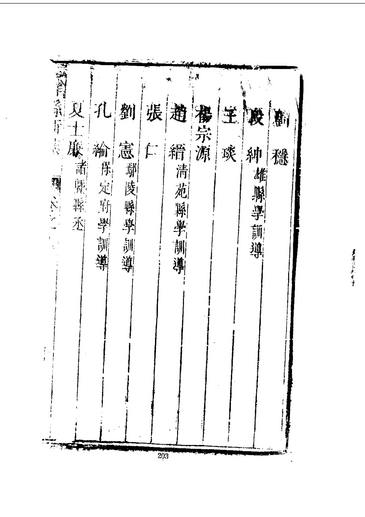 穩
段紳雄縣學訓導
王琰
楊宗源
趙縉清苑縣學訓導
張仁
劉憲鄢陵縣學訓導
孔綸保定府學訓導
夏士廉諸縣縣丞
203